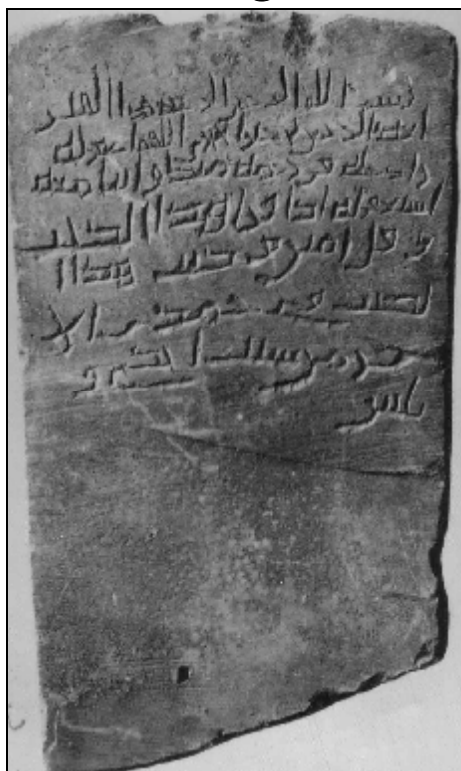 بسم الله الرحمن الرحيم هذا القبر
لعبد الرحمن بن خير الحجري اللهم اغفر له
وادخله في رحمة منك واتنا معه
استغفر له اذا قرا هذا الكتب
وقل امين وكتب هذا ا
لكتب في جمدى الا
خر من سنت احدى و
ثلثين